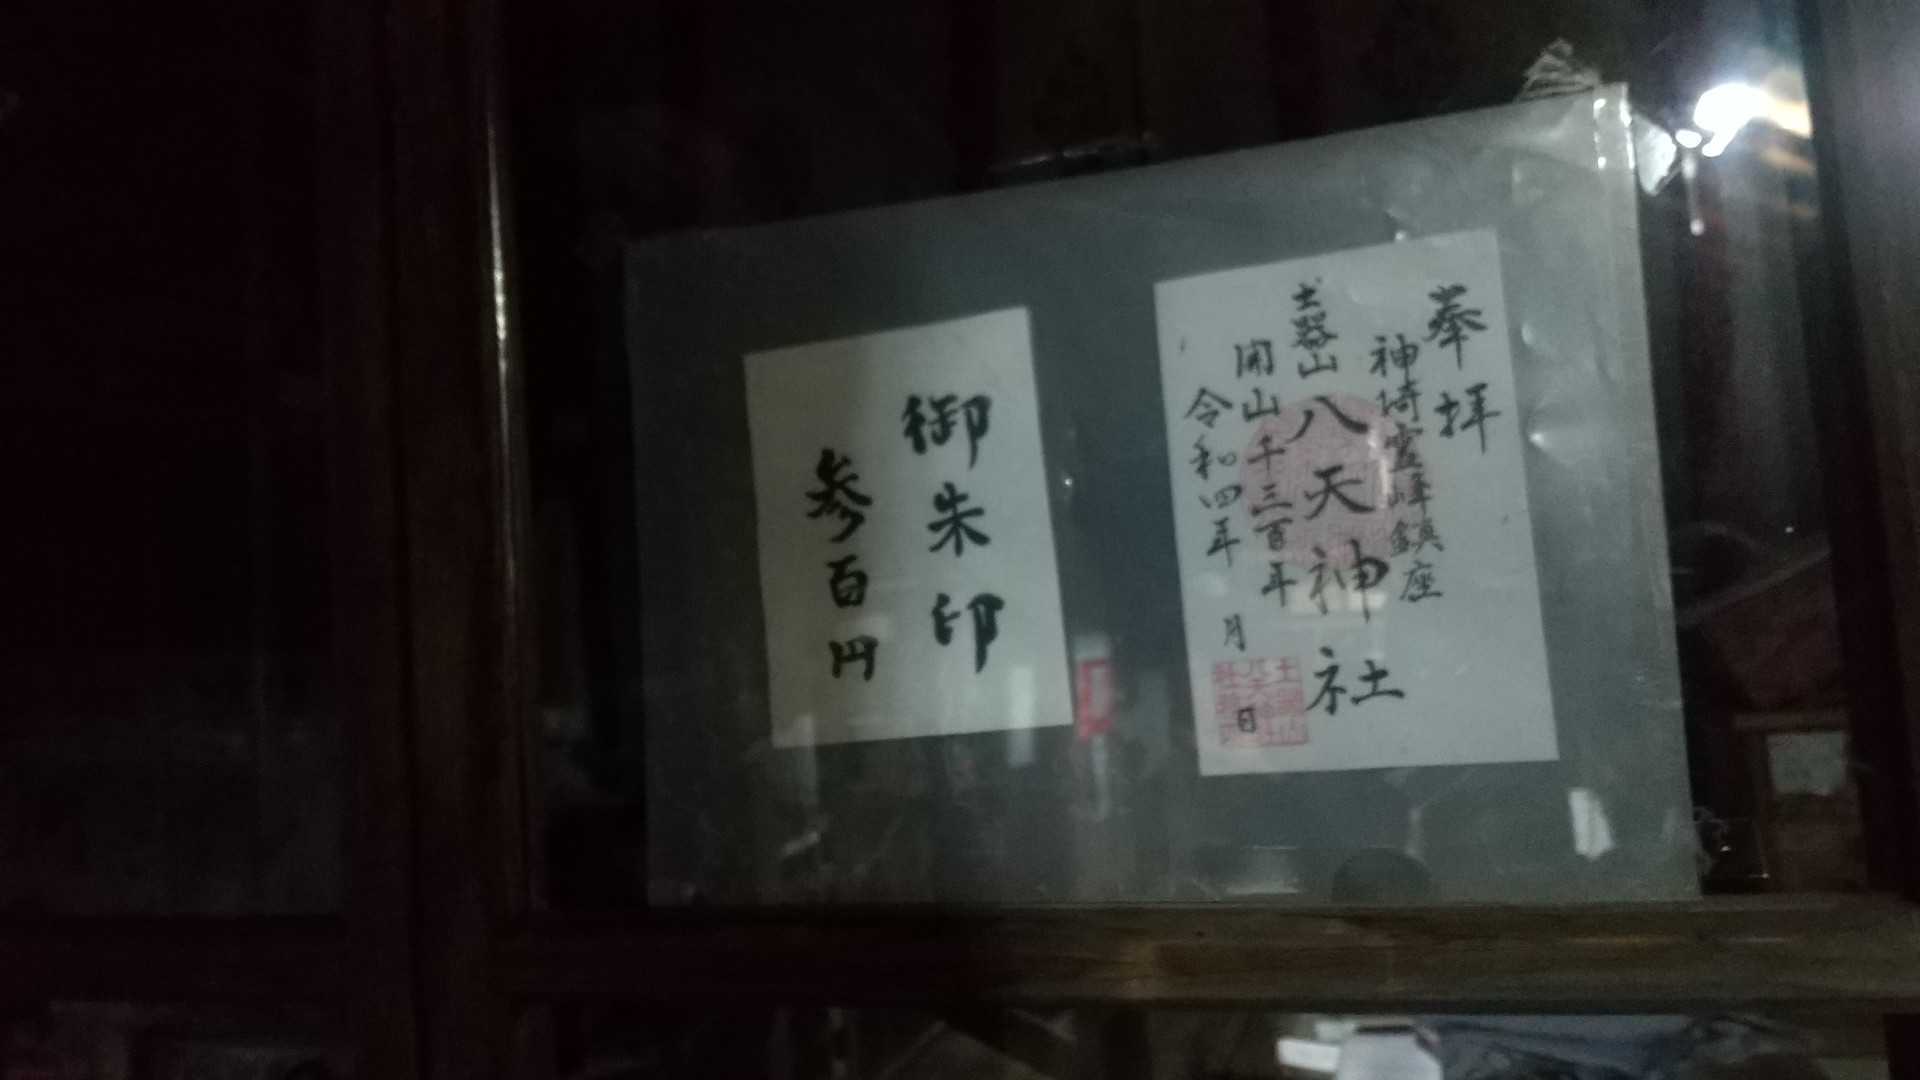 奉拝
神埼霊峰鎮座
土器山八天神社
開山千三百年
令和四年 月 日
御朱印
参百円